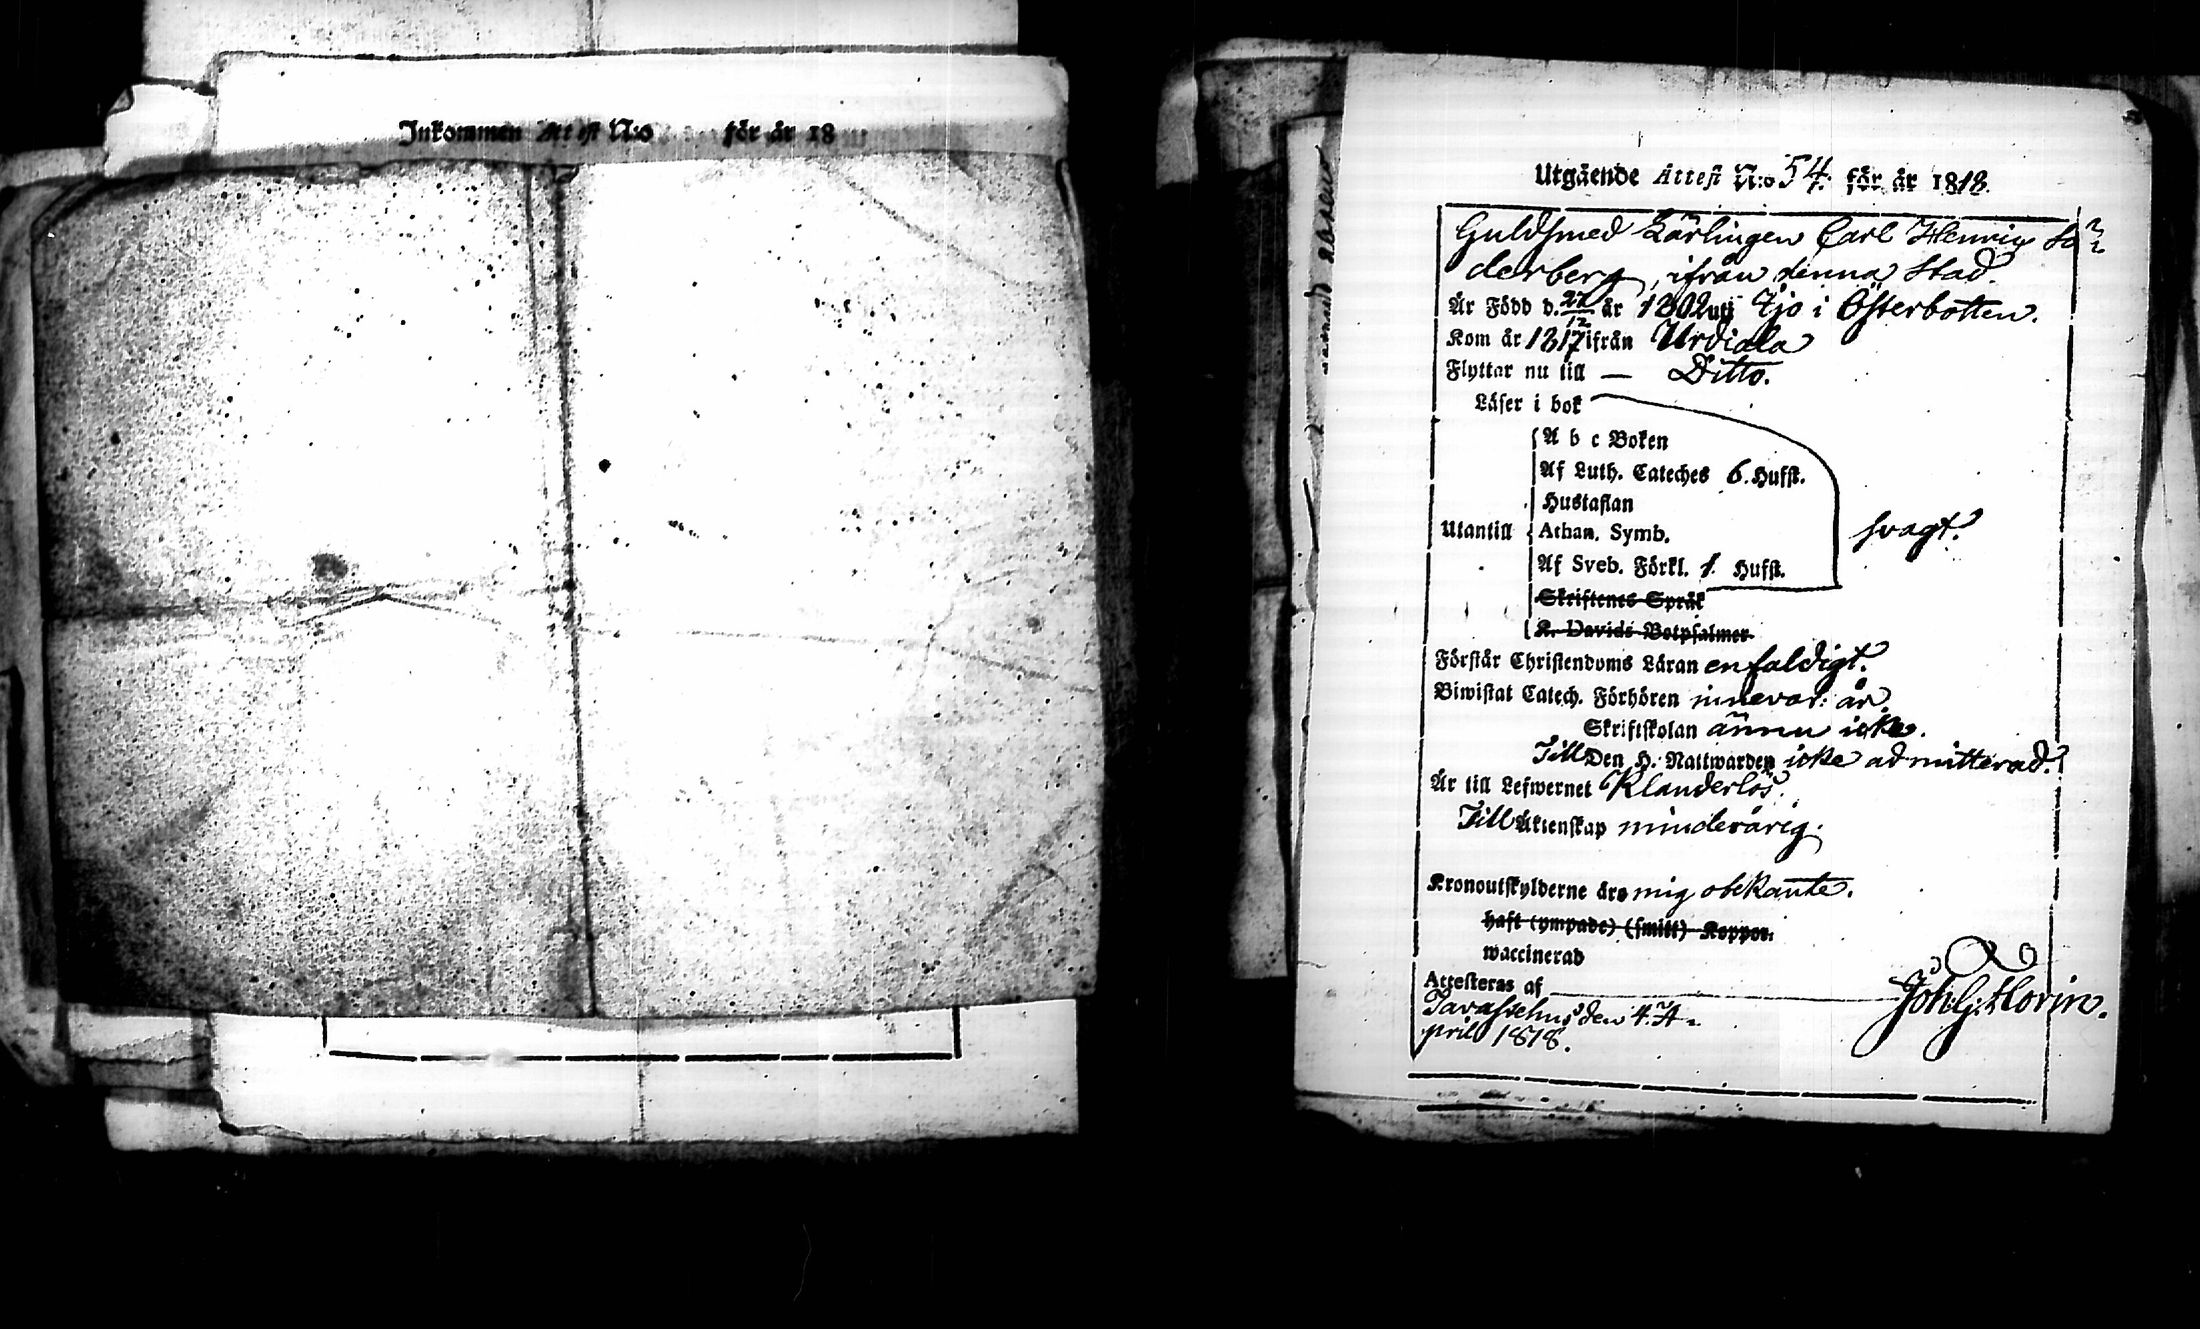 Inkommen Attest N:o för år 18
Utgående Attest N:o 54. för år 1818.
Guldsmed Lärlingen Carl Henric Sö=
derberg, ifrån denna Stad
Är Född d. 27/12 år 1802 uti Ijo i Österbotten.
Kom år 1817 ifrån Urdiala
Flyttar nu till — Ditto.
Läser i bok
A b c Boken
Af Luth. Cateches 6. Hufst.
Hustaflan
Utantill Athan. Symb.
svagt.
Af Sveb. Förkl. 1. Hufst.
Skriftenes Språk
K. Davids Botpsalmer
Förstår Christendoms Läran enfaldigt.
Biwistat Catech. Förhören innevar: år
Skriftskolan ännu icke.
Till Den H. Nattwarden icke admitterad.
Är till Lefwernet Klanderlös.
Till Äktenskap minderårig.
Kronoutskylderne äro mig obekante.
haft (ympade) (smitt) Koppor.
waccinerad
Attesteras af Joh: G: Florin.
Tavastehus den 4. A=
pril 1818.